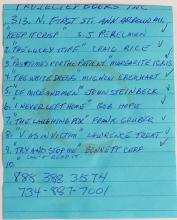 BOOKS INC
313 N. FIRST ST. ANN ARBOR MI
"KEEP IT CRISP" S.J. PERELMAN
2. "THE LUCKY STIFF" CRAIG RICE
3. PASTIMES FOR THE PATIENT. MARGUERITE ICKIS
4. THE WHITE DRESS. MIGNON EBERHART
5. OF MICE AND MEN. JOHN STEINBECK
6. I NEVER LEFT HOME" BOB HOPE
7. THE LAUGHING FOX" FRANK GRUBER
8. "V AS IN VICTIM" LAWRENCE TREAT
9. "TRY AND STOP ME" BENNETT CERF
10.
888 388 3574
734-887-7001